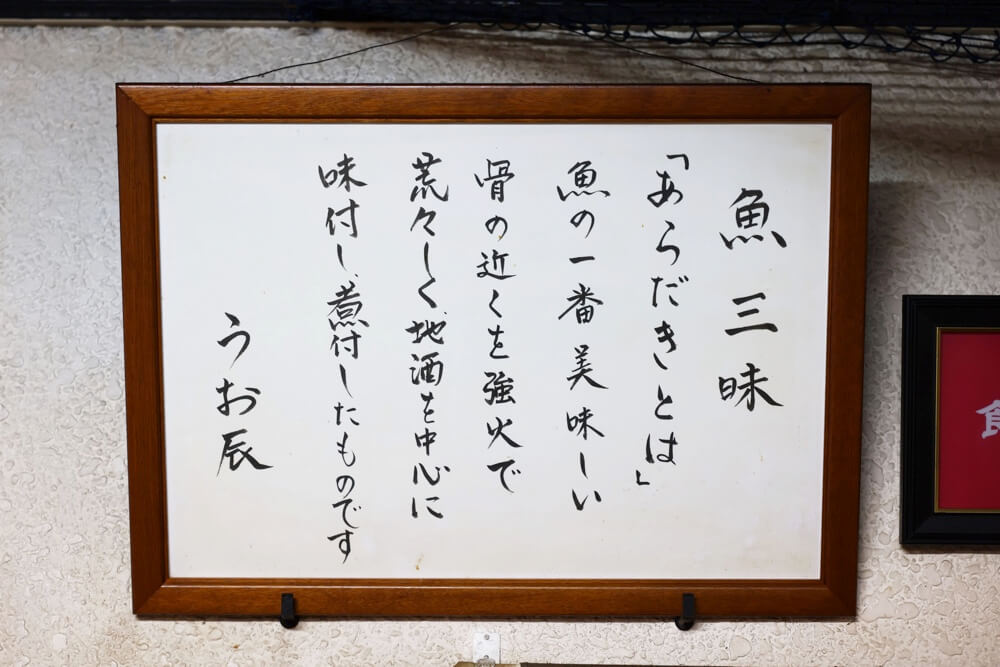 魚三昧
「あらだきとは」
魚の一番美味しい
骨の近くを強火で
荒々しく、地酒を中心に
味付し、煮付したものです
うお辰